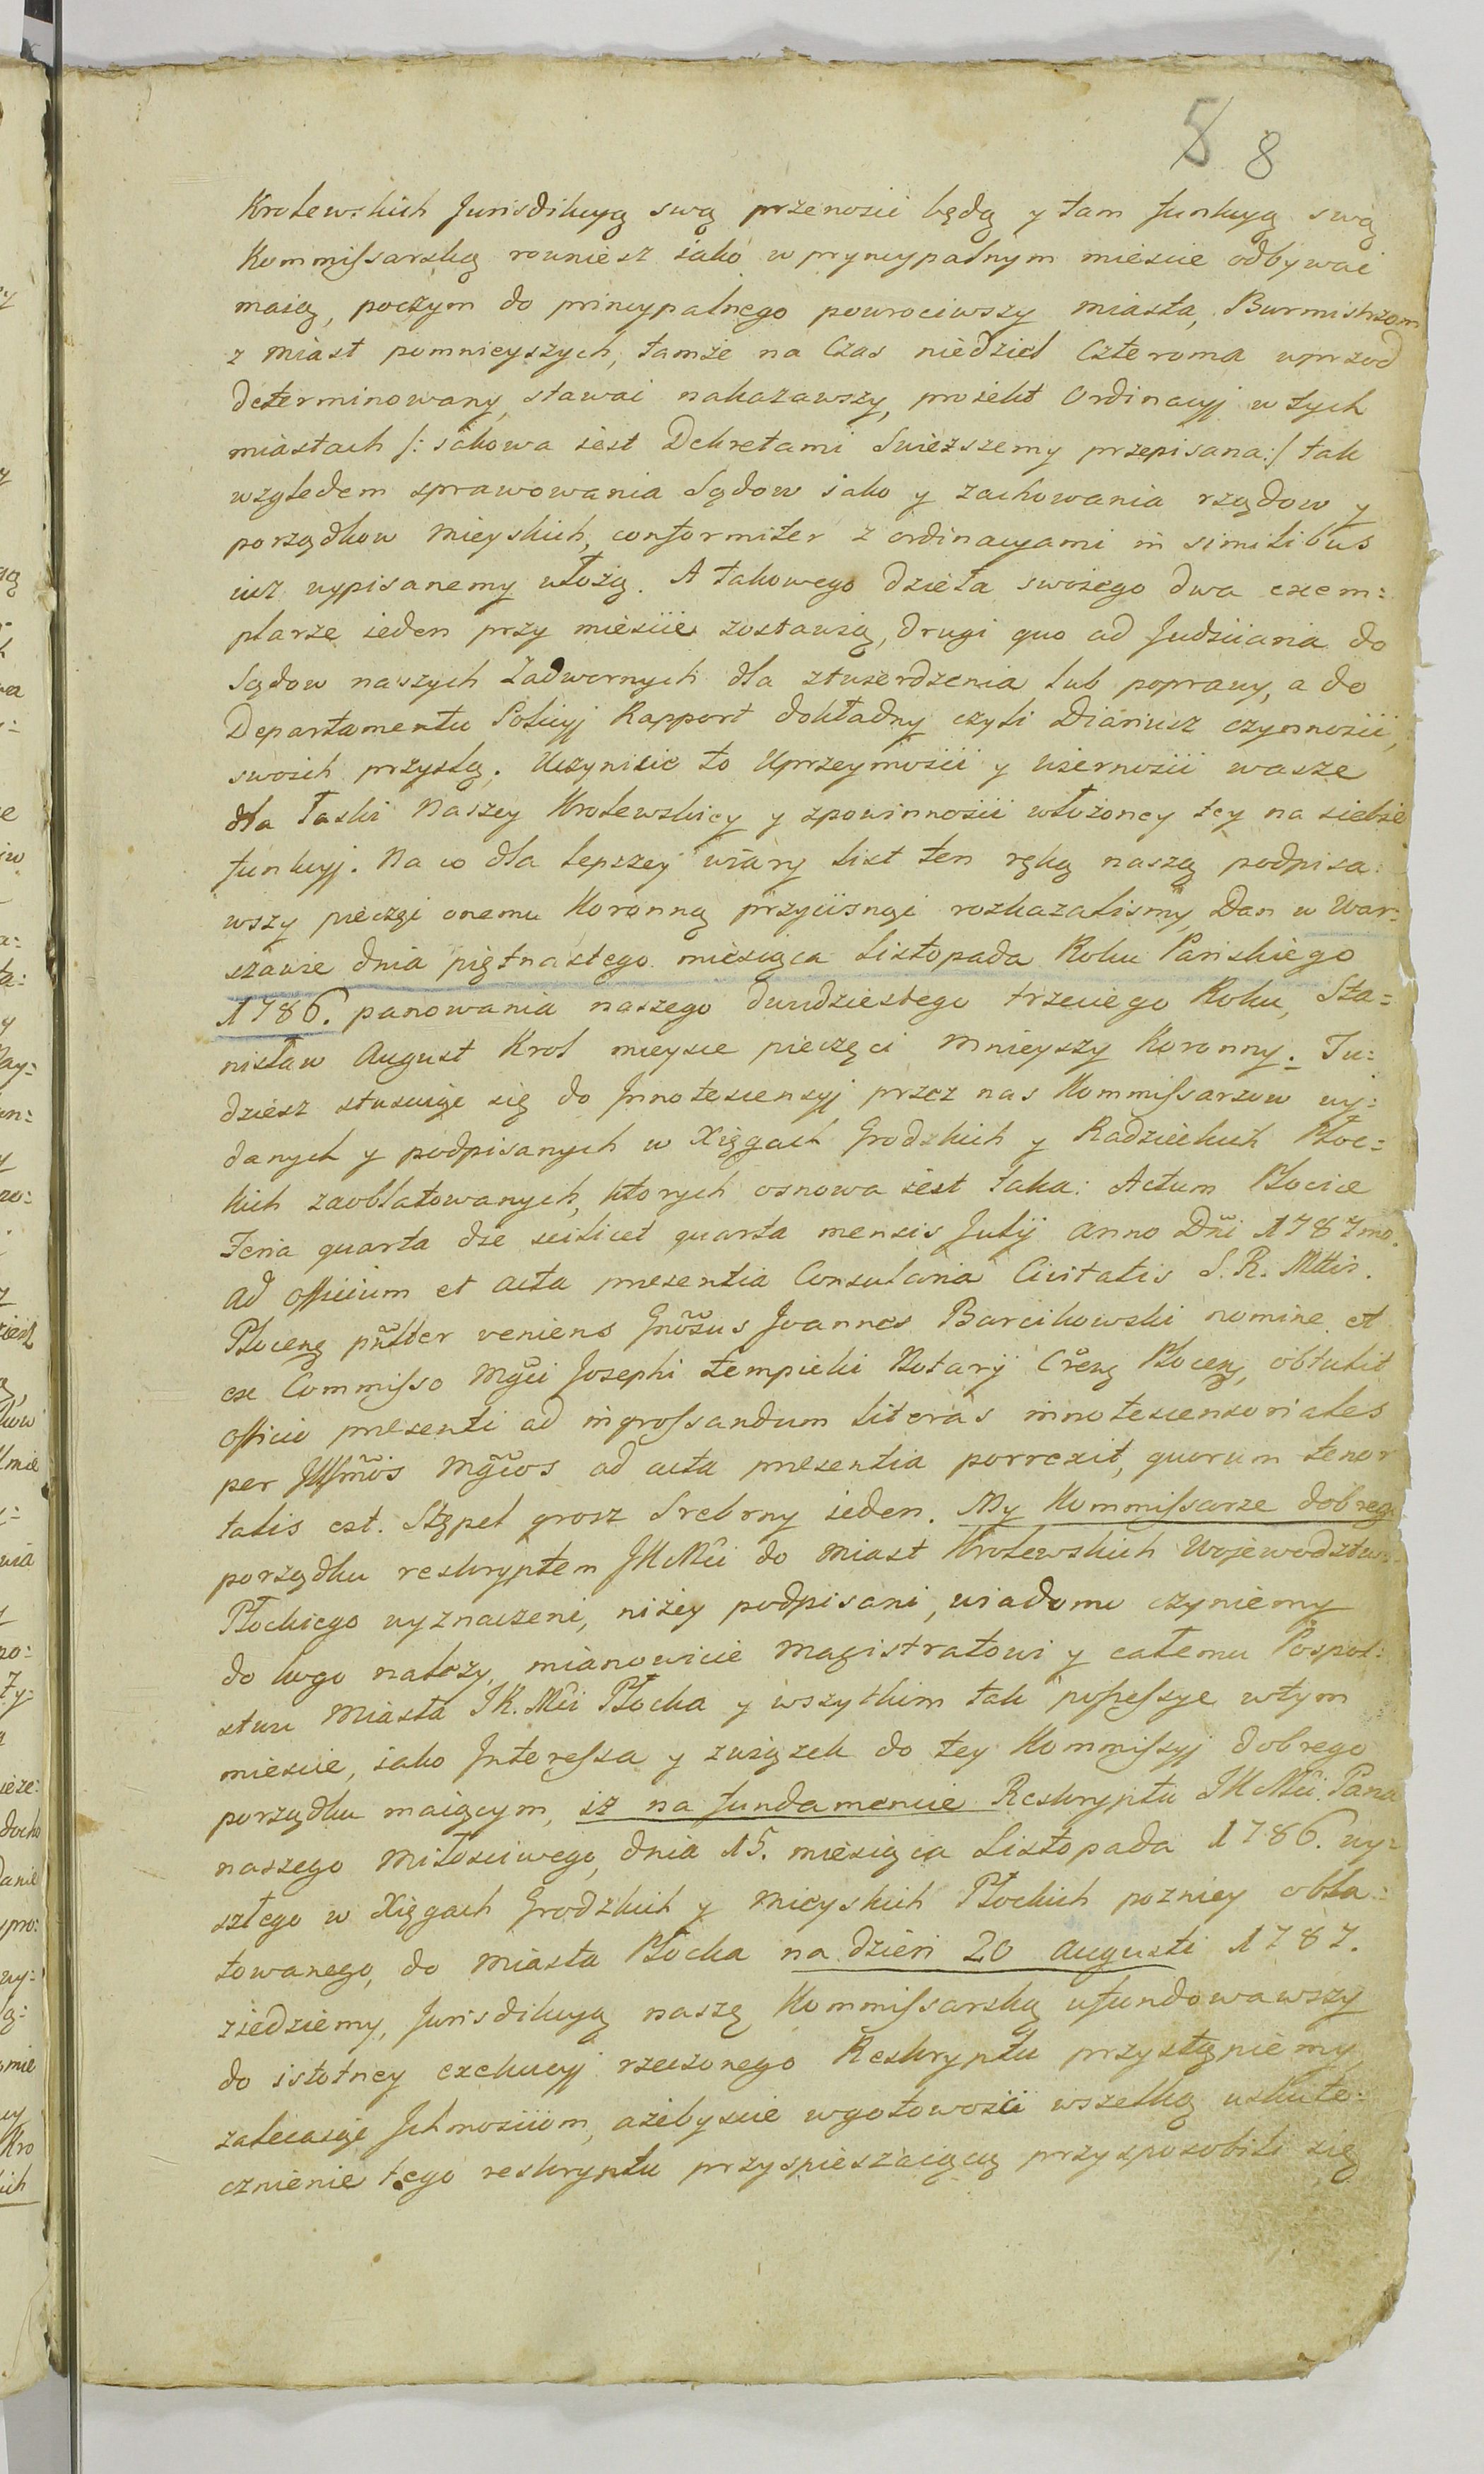 5 8
Krolewskich Jurisdikcyą swą przenosić będą y tam funkcyą swą
Kommissarską rowniesz iako w pryncypalnym mieście odbywać
maią, poczym do princypalnego powrociwszy miasta, Burmistrzom
z miast pomnieyszych, tamże na Czas niedziel Czteroma wprzod
determinowany, stawać nakazawszy, proiekt Ordinacyj w tych
miastach /: iakowa iest Dekretami Swieższemy przepisana :/ tak
względem sprawowania Sądow iako y zachowania rządow y
porządkow Mieyskich, conformiter z ordinacyami in similibus
iusz wypisanemy ułożą. A takowego dzieła swoiego dwa exem:
plarze ieden przy mieście zostawią, drugi quo ad Judiciaria do
Sądow naszych Zadwornych dla ztwierdzenia lub poprawy, a do
Departamentu Policyj Rapport dokładny czyli Diariusz czynności,
swoich przyszlą. Uczynicie to Uprzeymości y wierności wasze
dla Łaski Naszey Krolewskiey y zpowinności włożoney tey na siebie
funkcyj. Na co dla lepszey wiary list ten ręką naszą podpisa:
wszy pieczęć onemu Koronną przycisnąć rozkazalismy, Dan w War:
szawie dnia piętnastego miesiąca Listopada Roku Pańskiego
1786. panowania naszego dwudziestego trzeciego Roku, Sta=
nisław August Krol mieysce pieczęci Mnieyszy Koronny. Tu:
dziesz stusuiąc się do Jnnotescencyj przez nas Kommissarzow wy:
danych y podpisanych w Xięgach Grodzkich y Radzieckich Płoc=
kich zaoblatowanych, ktorych osnowa iest taka: Actum Plociæ
Feria quarta die scilicet quarta mensis Julij Anno Dñi 1787mo.
Ad officium et acta presentia Consularia Civitatis S. R. Mttis.
Plocen̄ pñlter veniens Gñosus Joannes Barcikowski nomine et
ex Commisso Mgci Josephi Łempicki Notarij Crens Plocens, obtulit
officio presenti ad ingrossandum literas innotescensoriales
per Jllsmos Mgcos ad acta presentia porrexit, quorum tenor
talis est. Stępel grosz Srebrny ieden. My Kommissarze dobrego
porządku reskryptem JK Mci do Miast Krolewskich Wojewodztwa
Płockiego wyznaczeni, niżey podpisani, wiadomo czyniemy
do kogo należy, mianowicie Magistratowi y całemu Pospol:
stwu Miasta JK. Mci Płocka y wszytkim tak possessye wtym
mieście, iako Jnteressa y związek do tey Kommissyj dobrego
porządku maiącym, iż na fundamencie Reskryptu JK Mci Pana
naszego Miłościwego, dnia 15. miesiąca Listopada 1786. wy=
szłego w Xięgach Grodzkich y Mieyskich Płockich pozniey obla:
towanego, do Miasta Płocka na dzień 20 Augusti 1787.
ziedziemy, Jurisdikcyą naszę Kommissarską ufundowawszy
do istotney exekucyj rzeczonego Reskryptu przystąpiemy,
zalecaiąc Jchmościom, ażebyście wgotowości wszelką uskute:
cznienie tego reskryptu przyspieszaiącą przysposobili się